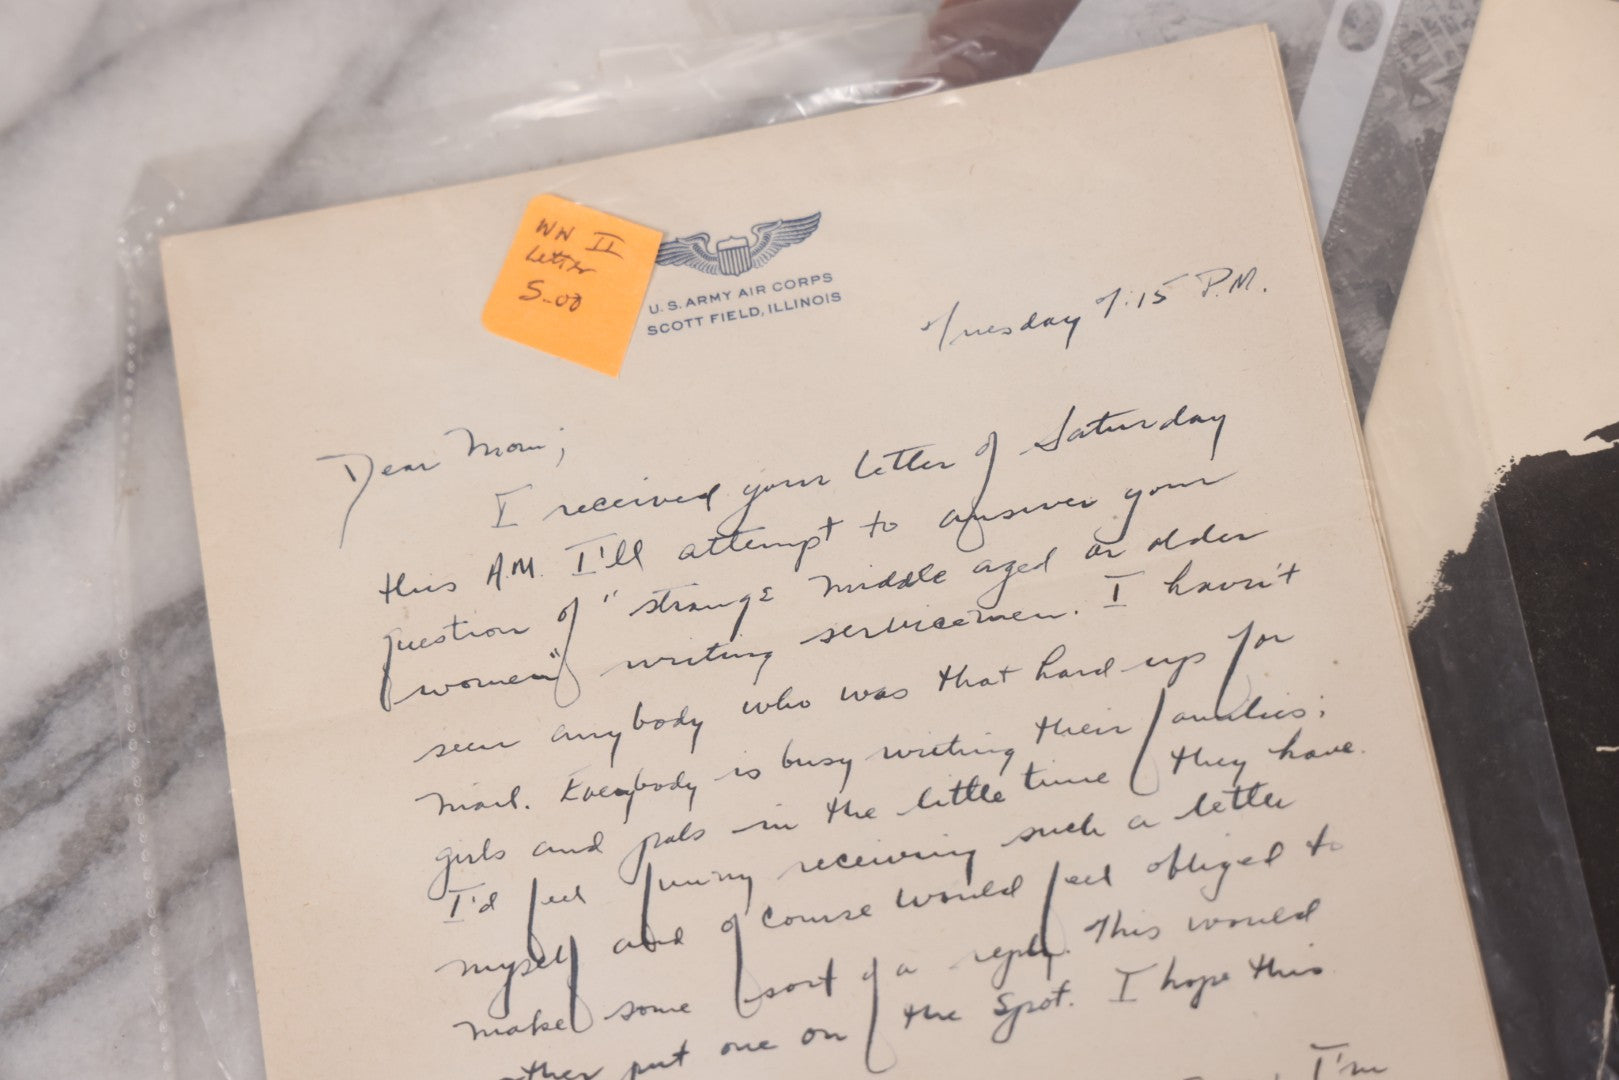 WW II
Letter
5.00
U.S. ARMY AIR CORPS
SCOTT FIELD, ILLINOIS
Tuesday 7:15 P.M.
Dear Mom;
I received your letter of Saturday
this A.M. I'll attempt to answer your
question of "strange middle aged or older
women" writing servicemen. I havn't
seen anybody who was that hard up for
mail. Everybody is busy writing their families;
girls and pals in the little time they have.
I'd feel funny receiving such a letter
myself and of course would feel obliged to
make some sort of a reply. This would
put one on the spot. I hope this
I'm